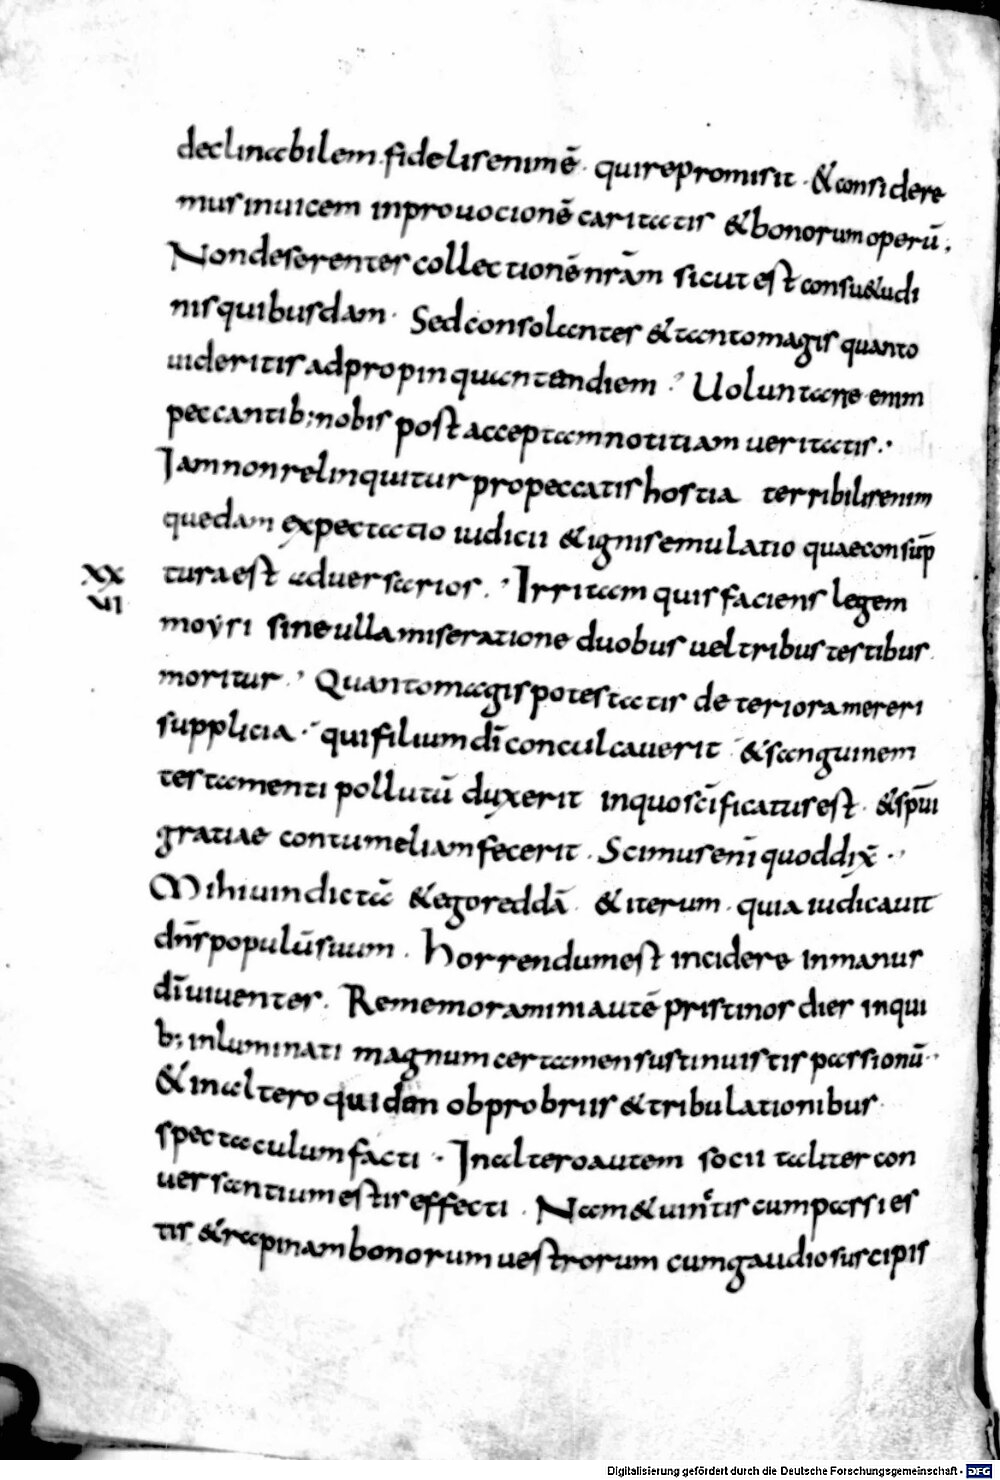 declinabilem. fidelis enim ē. qui repromisit. & considere
mus inuicem in prouocionē caritatis & bonorum operū.
Non deserentes collectionē nrām sicut est consu&udi
nis quibusdam. Sed consolantes & tanto magis quanto
uideritis adpropinquantandiem. Uoluntarie enim
peccantib; nobis post acceptam notitiam ueritatis.
Iam non relinquitur pro peccatis hostia terribilis enim
quedam expectatio iudicii & ignis emulatio quae consūp
XX
VI
tura est aduersarios. Irritam quis faciens legem
moysi sine ulla miseratione duobus uel tribus testibus
moritur. Quanto magis potestatis deteriora mereri
supplicia. qui filium dī conculcauerit & sanguinem
testamenti pollutū duxerit in quo scīficatus est. & spūi
gratiae contumeliam fecerit. Scimus enī quod dix̄.
Mihi uindictā & ego reddā. & iterum. quia iudicauit
dn̄s populū suum. Horrendum est incidere in manus
dī uiuentes. Rememoramini autē pristinos dies in qui
b; inluminati magnum certamen sustinuistis passionū.
& in altero quidem obprobriis & tribulationibus
spectaculum facti. In altero autem socii taliter con
uersantium estis effecti. Nam & uinctis cum passi es
tis & rapinam bonorum uestrorum cum gaudio suscipis
Digitalisierung gefördert durch die Deutsche Forschungsgemeinschaft - DFG